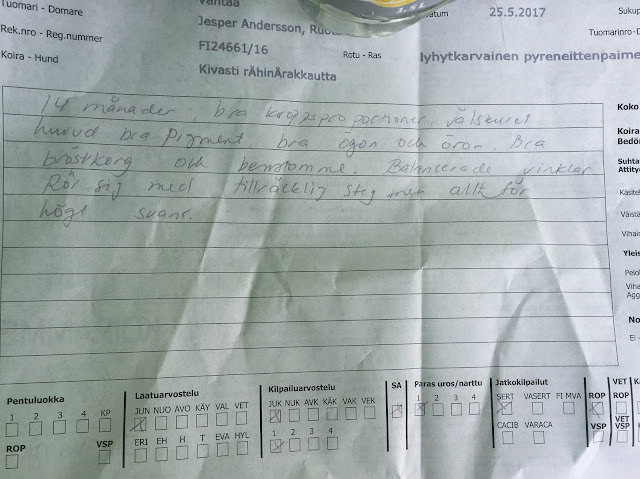 Vantaa
Tuomari - Domare
Jesper Andersson, Ruots
atum
25.5.2017
Sukup
Rek.nro - Reg.nummer
FI24661/16
Tuomarinro-D
Koira - Hund
Rotu - Ras
lyhytkarvainen pyreneittenpaime
Kivasti rÄhinÄrakkautta
14 månader, bra kroppsproportioner, välskuret
huvud bra pigment, bra ögon och öron. Bra
bröstkorg och benstomme Balanserade vinklar
Rör sig med tillräcklig steg men allt för
högt svans.
Koko
Koira
Bedör
Suhta
Attity
Käsitel
Väistä
Vihai
Yleis
Peloi
Viha
Agg
No
Ei -
Pentuluokka
1 2 3 4 KP
ROP VSP
Laatuarvostelu
JUN NUO AVO KÄY VAL VET
ERI EH H T EVA HYL
Kilpailuarvostelu
JUK NUK AVK KÄK VAK VEK
1 2 3 4
SA
Paras uros/narttu
1 2 3 4
Jatkokilpailut
SERT VASERT FI MVA
CACIB VARACA
ROP
VSP
VET
ROP
VET
VSP